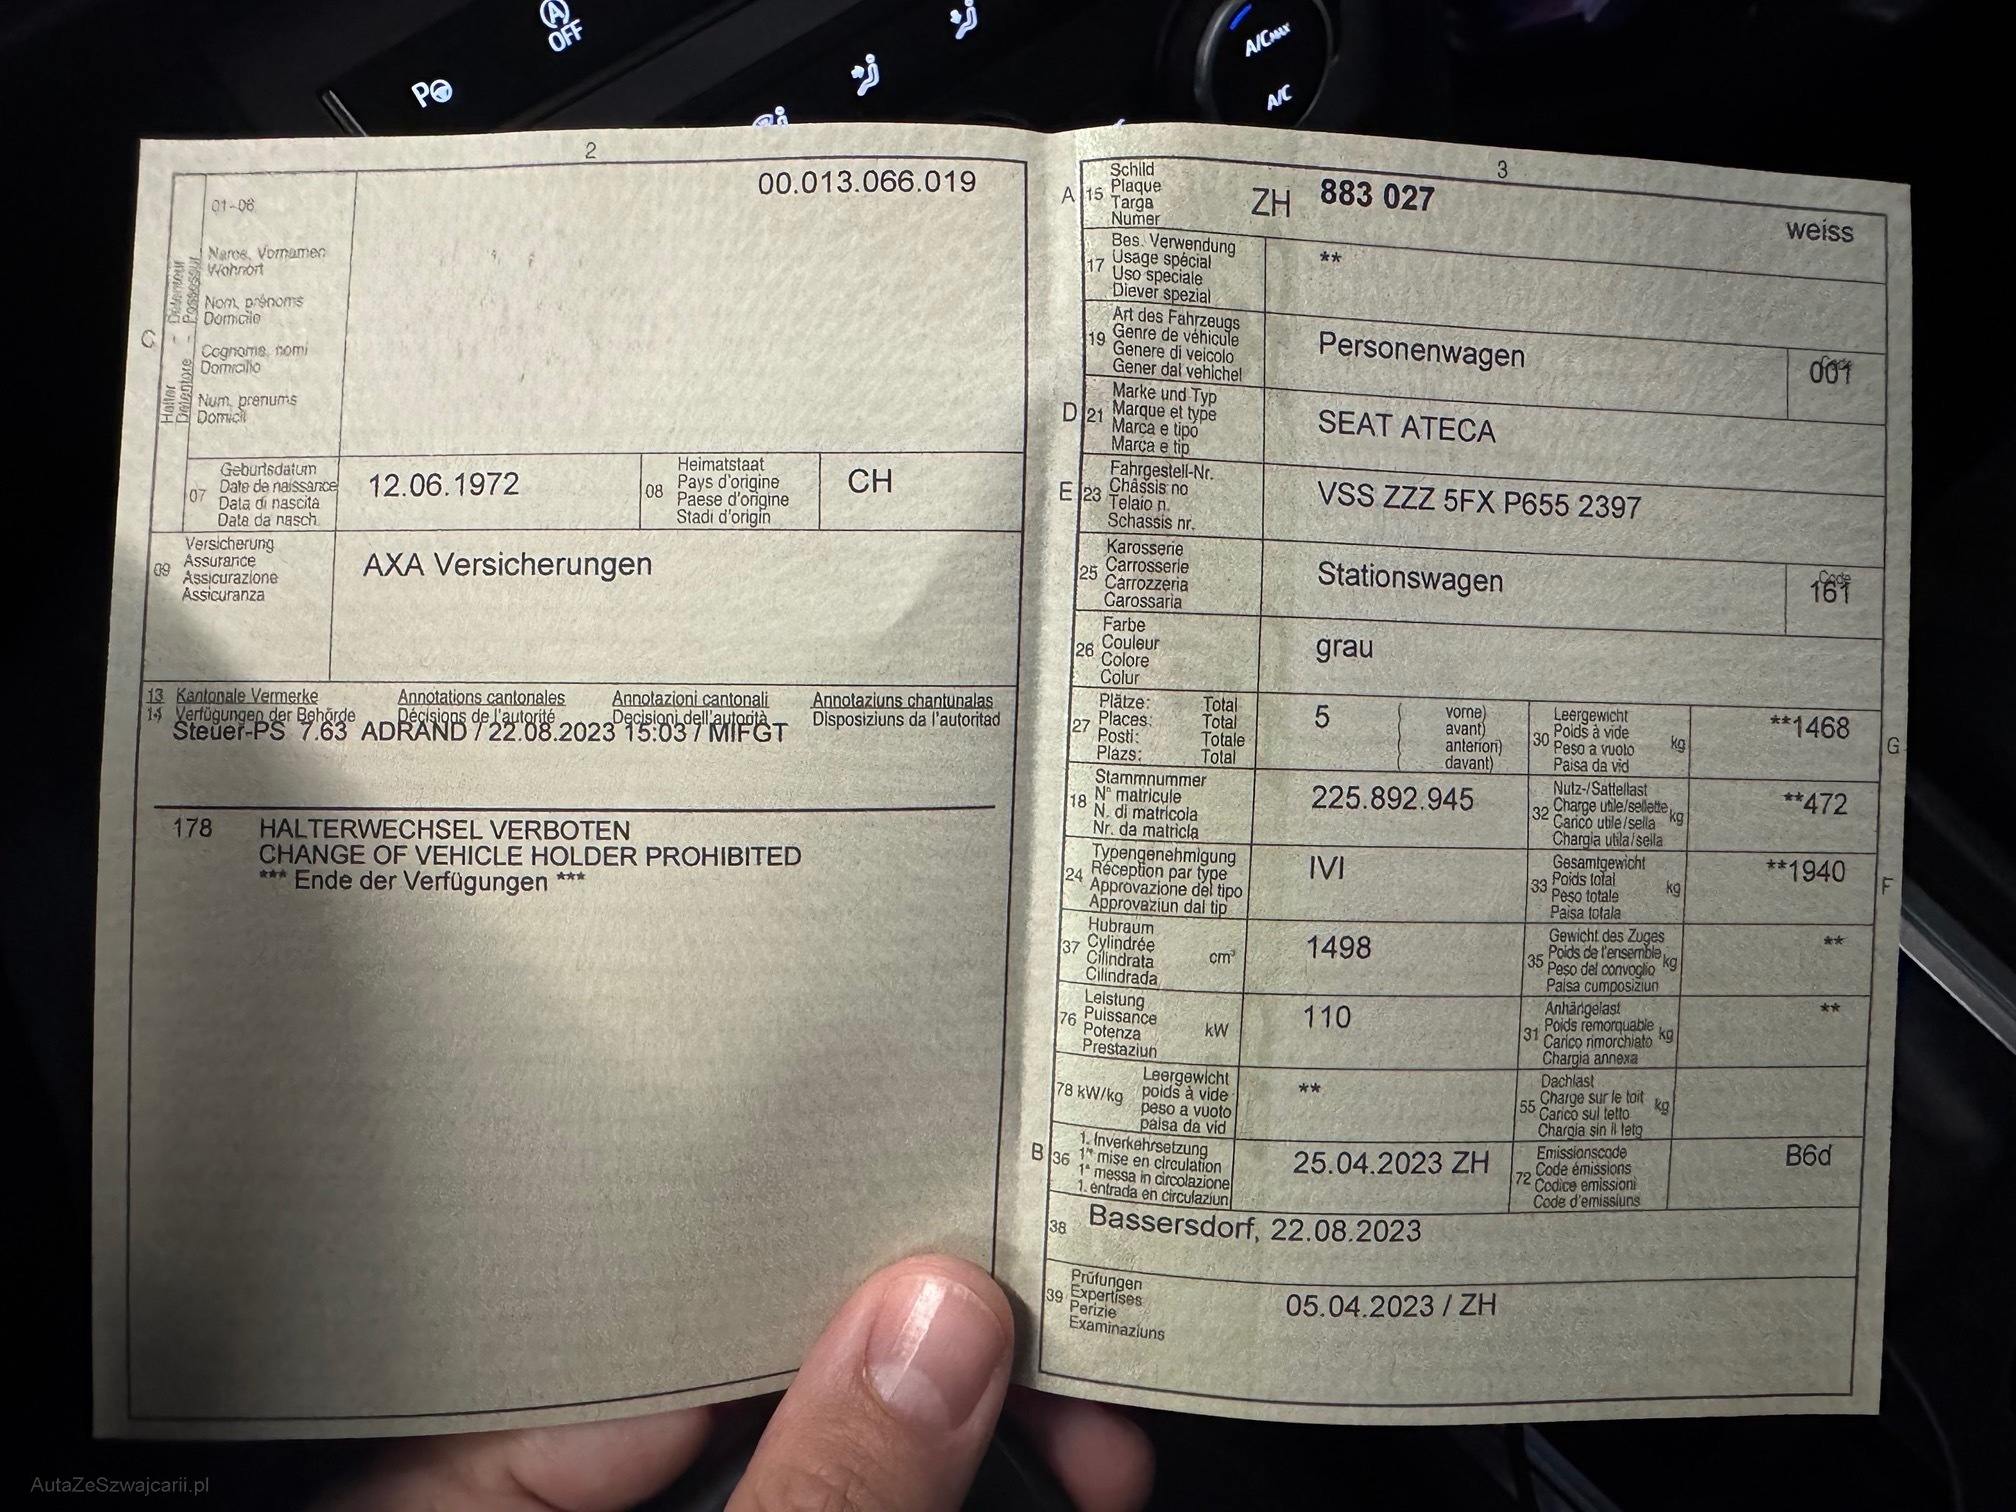 A
OFF
P
A/C MAX
A/C
2
00.013.066.019
01-06
Name, Vornamen
Wohnort
Nom, prénoms
Domicile
Cognome, nomi
Domicilio
Num, prenums
Domicil
C
Halter - Détenteur
Detentore - Possessur
07
Geburtsdatum
Date de naissance
Data di nascita
Data da nasch.
12.06.1972
08
Heimatstaat
Pays d'origine
Paese d'origine
Stadi d'origin
CH
09
Versicherung
Assurance
Assicurazione
Assicuranza
AXA Versicherungen
13 Kantonale Vermerke Annotations cantonales Annotazioni cantonali Annotaziuns chantunalas
14 Verfügungen der Behörde Décisions de l'autorité Decisioni dell'autorità Disposiziuns da l'autoritad
Steuer-PS 7.63 ADRAND / 22.08.2023 15:03 / MIFGT
178 HALTERWECHSEL VERBOTEN
CHANGE OF VEHICLE HOLDER PROHIBITED
*** Ende der Verfügungen ***
3
A 15
Schild
Plaque
Targa
Numer
ZH 883 027
weiss
17
Bes. Verwendung
Usage spécial
Uso speciale
Diever spezial
**
19
Art des Fahrzeugs
Genre de véhicule
Genere di veicolo
Gener dal vehichel
Personenwagen
Code
001
D 21
Marke und Typ
Marque et type
Marca e tipo
Marca e tip
SEAT ATECA
E 23
Fahrgestell-Nr.
Châssis no
Telaio n.
Schassis nr.
VSS ZZZ 5FX P655 2397
25
Karosserie
Carrosserie
Carrozzeria
Carossaria
Stationswagen
Code
161
26
Farbe
Couleur
Colore
Colur
grau
27
Plätze: Total
Places: Total
Posti: Totale
Plazs: Total
5
( vorne)
( avant)
( anteriori)
( davant)
30
Leergewicht
Poids à vide
Peso a vuoto
Paisa da vid
kg
**1468
G
18
Stammnummer
N° matricule
N. di matricola
Nr. da matricla
225.892.945
32
Nutz-/Sattellast
Charge utile/sellette
Carico utile/sella
Chargia utila/sella
kg
**472
24
Typengenehmigung
Réception par type
Approvazione del tipo
Approvaziun dal tip
IVI
33
Gesamtgewicht
Poids total
Peso totale
Paisa totala
kg
**1940
F
37
Hubraum
Cylindrée
Cilindrata
Cilindrada
cm³
1498
35
Gewicht des Zuges
Poids de l'ensemble
Peso del convoglio
Paisa cumposiziun
kg
**
76
Leistung
Puissance
Potenza
Prestaziun
kW
110
31
Anhängelast
Poids remorquable
Carico rimorchiato
Chargia annexa
kg
**
78 kW/kg
Leergewicht
poids à vide
peso a vuoto
paisa da vid
**
55
Dachlast
Charge sur le toit
Carico sul tetto
Chargia sin il tetg
kg
B 36
1. Inverkehrsetzung
1re mise en circulation
1a messa in circolazione
1. entrada en circulaziun
25.04.2023 ZH
72
Emissionscode
Code émissions
Codice emissioni
Code d'emissiuns
B6d
38 Bassersdorf, 22.08.2023
39
Prüfungen
Expertises
Perizie
Examinaziuns
05.04.2023 / ZH
AutaZeSzwajcarii.pl